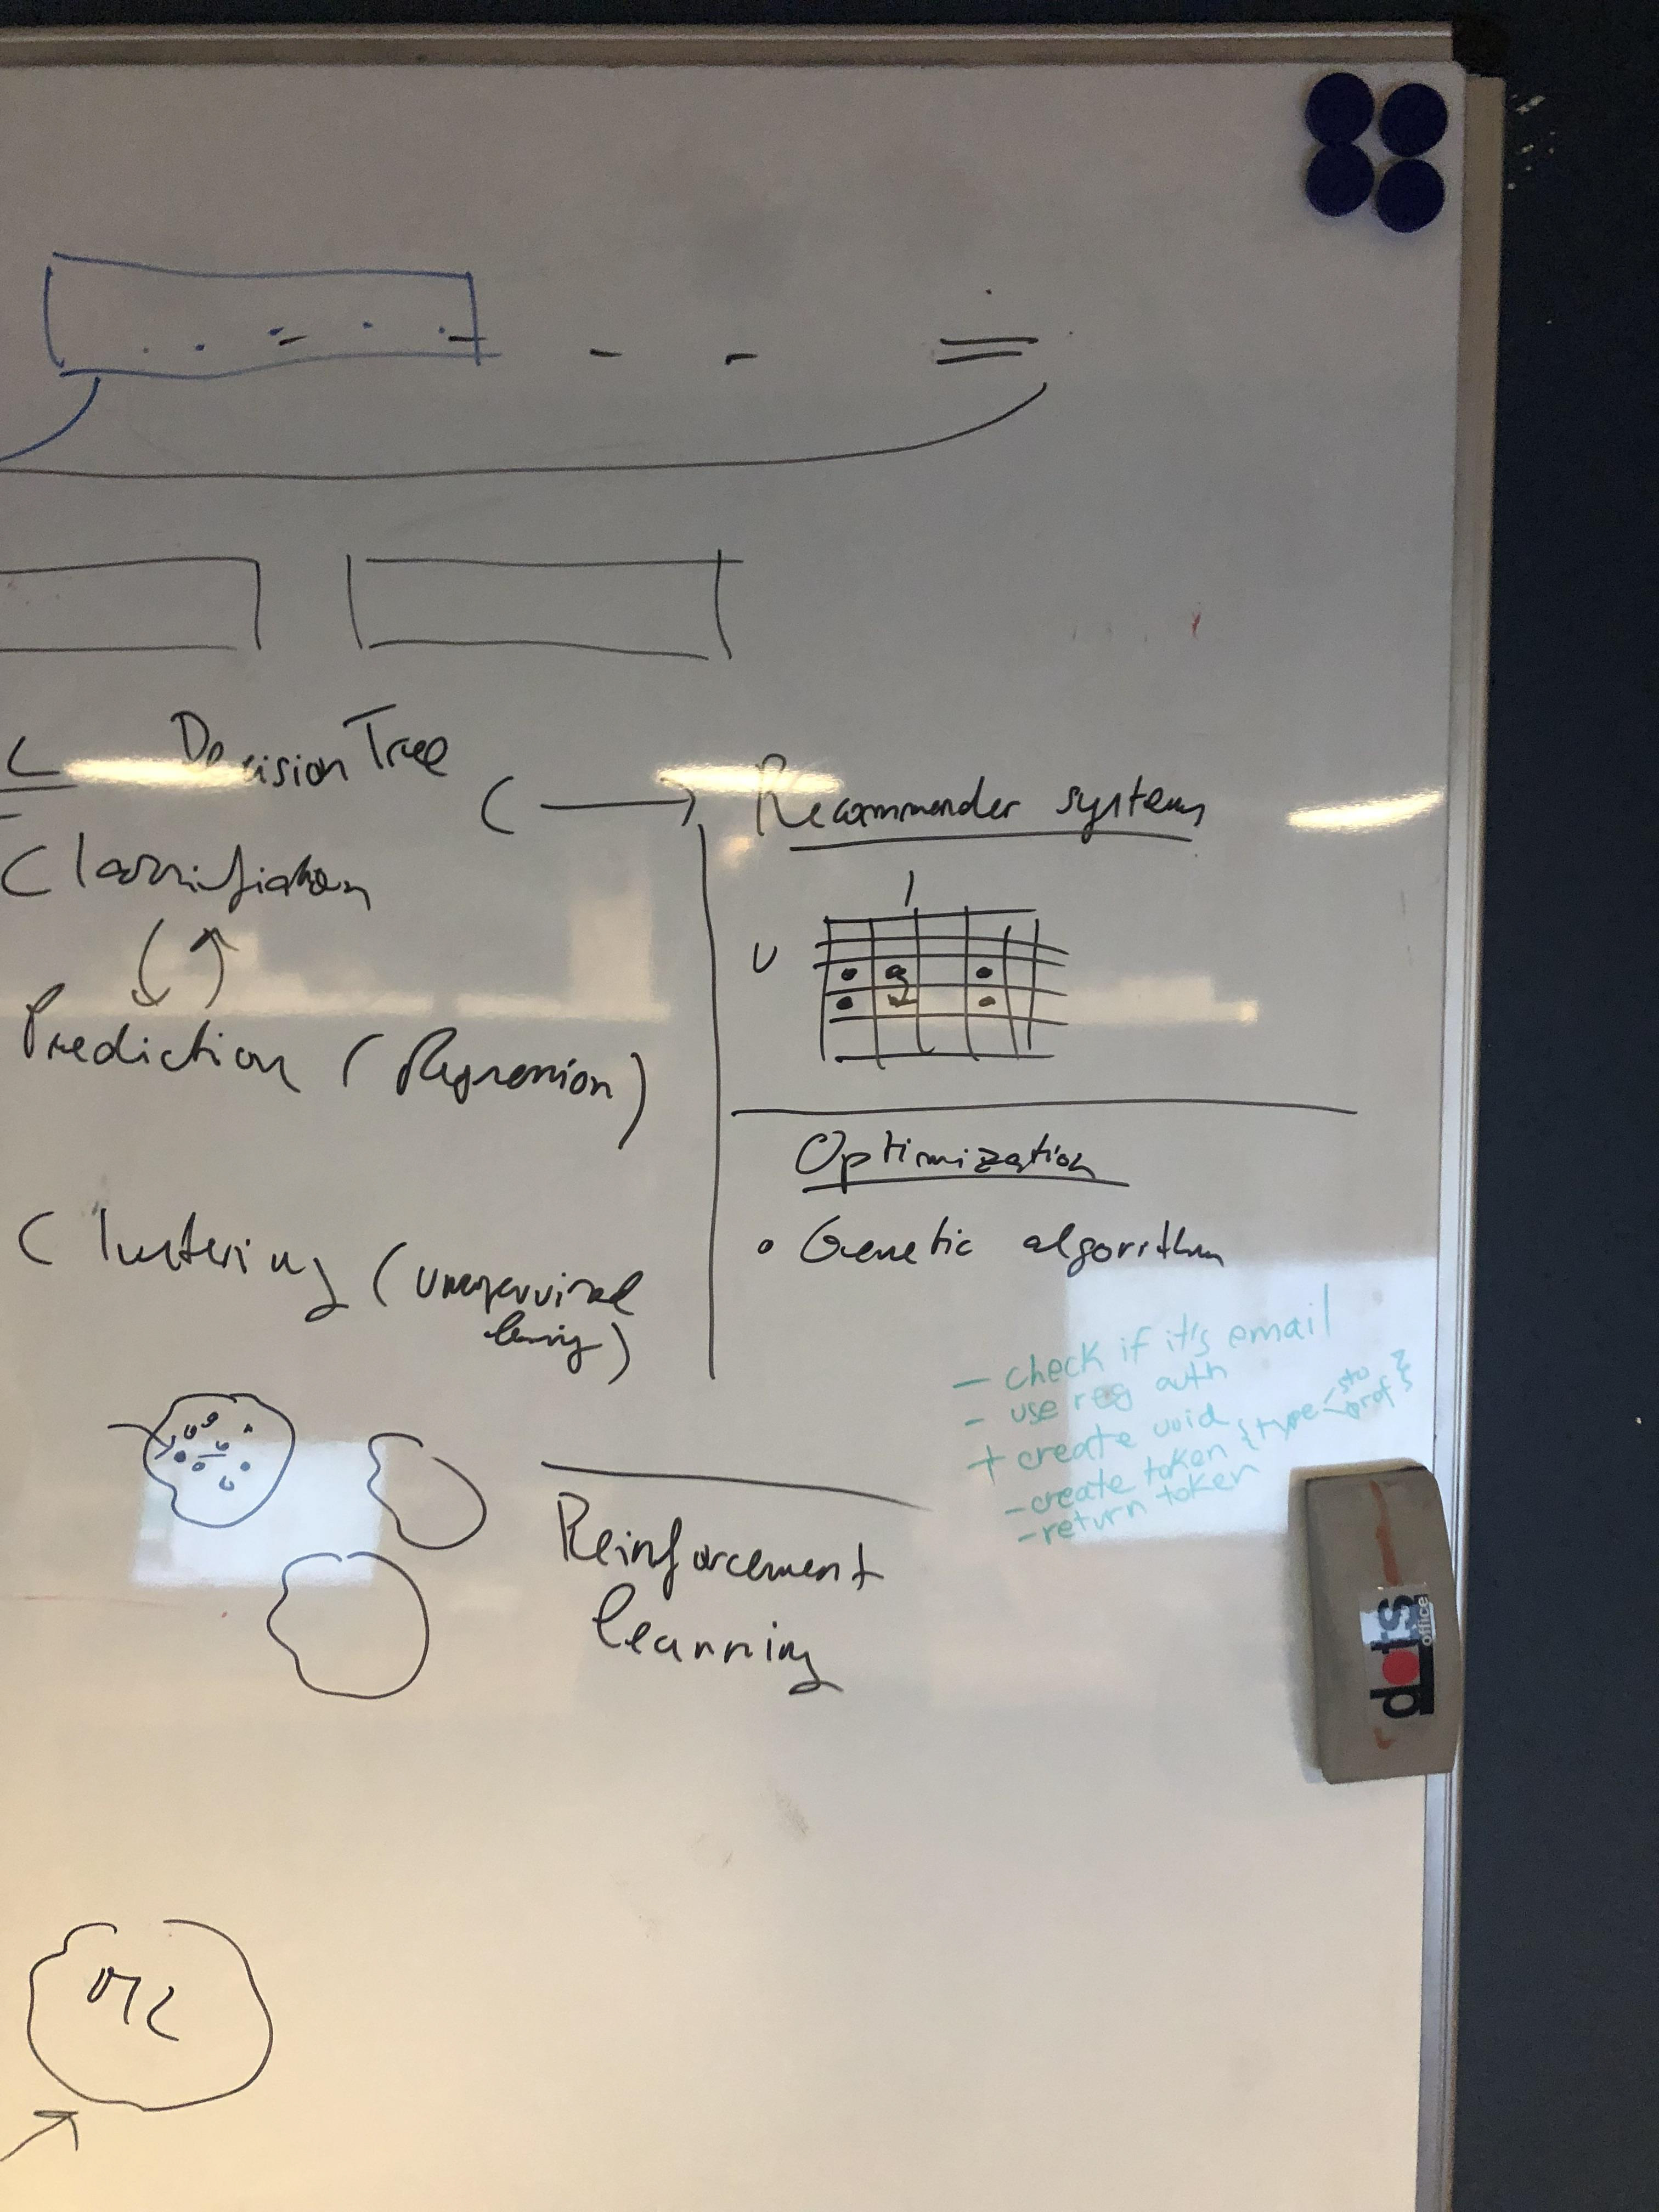 Decision Tree
Recommender systems
Classification
I
U
?
Prediction (Regression)
Optimization
• Genetic algorithm
Clustering (unsupervised
learning)
- check if it's email
- use reg auth
+ create uuid
- create token {type < stu
prof}
- return token
Reinforcement
learning
ML
dots
office